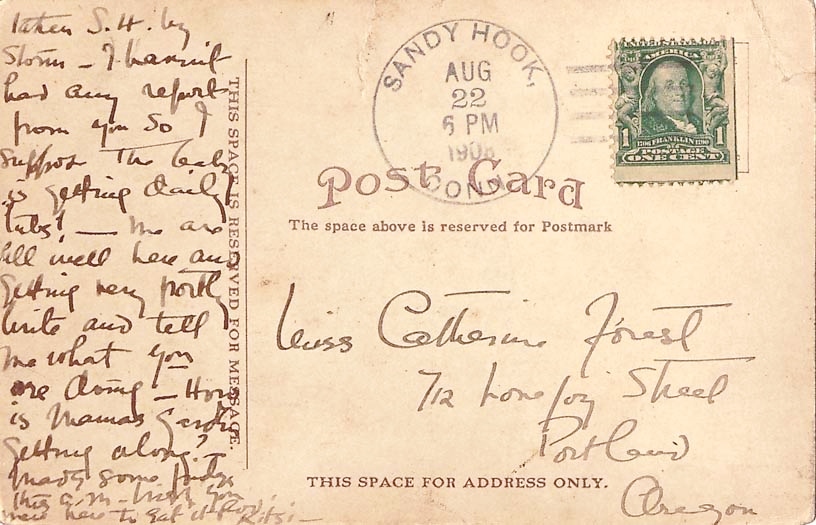 taken S.H. by
storm – I havn't
had any reports
from you so I
suppose the baby
is getting daily
tubs! – We are
all well here and
getting very portly
write and tell
me what you
are doing – How
is Mamas Garden
getting along? –
Made some fudge
this a.m. – Wish you
were here to eat it
THIS SPACE IS RESERVED FOR MESSAGE.
SANDY HOOK,
AUG
22
6 PM
1908
CONN.
AMERICA
1 1706 FRANKLIN 1790 1
POSTAGE
ONE CENT
Post Card
The space above is reserved for Postmark
Miss Catherine Forest
712 Lovejoy Street
Portland
Oregon
THIS SPACE FOR ADDRESS ONLY.